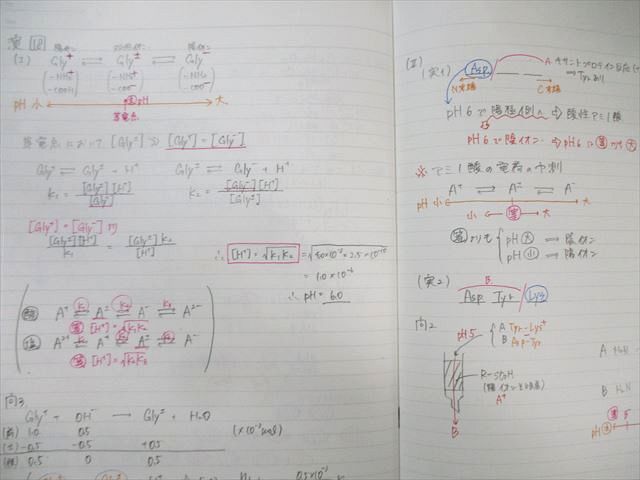 演 18
(I) 陽イオン 双性イオン 陰イオン
Gly⁺ ⇄ Gly± ⇄ Gly⁻
(-NH₃⁺ -COOH) (-NH₃⁺ -COO⁻) (-NH₂ -COO⁻)
pH 小 ← 等pH → 大
等電点
等電点において [Gly±] ≫ [Gly⁺] = [Gly⁻]
Gly⁺ ⇄ Gly± + H⁺ Gly± ⇄ Gly⁻ + H⁺
K₁ = [Gly±][H⁺]/[Gly⁺] K₂ = [Gly⁻][H⁺]/[Gly±]
[Gly⁺] = [Gly⁻] より
[Gly±][H⁺]/K₁ = [Gly±]K₂/[H⁺]
∴ [H⁺] = √K₁K₂
= 1.0×10⁻⁶
∴ pH = 6.0
酸 A⁺ ⇄ A± ⇄ A⁻ ⇄ A²⁻
K₁ K₂ K₃
等 [H⁺] = √K₁K₂
塩 A²⁺ ⇄ A⁺ ⇄ A± ⇄ A⁻
等 [H⁺] = √K₂K₃
問3.
Gly⁺ + OH⁻ → Gly± + H₂O
(前) 1.0 0.5 (×10⁻³mol)
-0.5 -0.5 +0.5
(後) 0.5 0 0.5
(II)
(実1) Asp
A. キサントプロテイン反応
⇒ Tyrあり
N末端 C末端
pH 6で陽極側へ ⇒ 酸性アミノ酸
pH 6で陰イオン ⇒ pH 6は等よりも大
※ アミノ酸の電荷の予測
A⁺ ⇄ A± ⇄ A⁻
pH 小 大
小 ← 等 → 大
等よりも { pH 大 → 陰イオン
pH 小 → 陽イオン
(実2) B
Asp Tyr Lys
問2
pH5 { A Tyr-Lys⁺
B Asp-Tyr
R-SO₃H
A⁺
B
A H₂N
B H₂N
等 5
pH 小